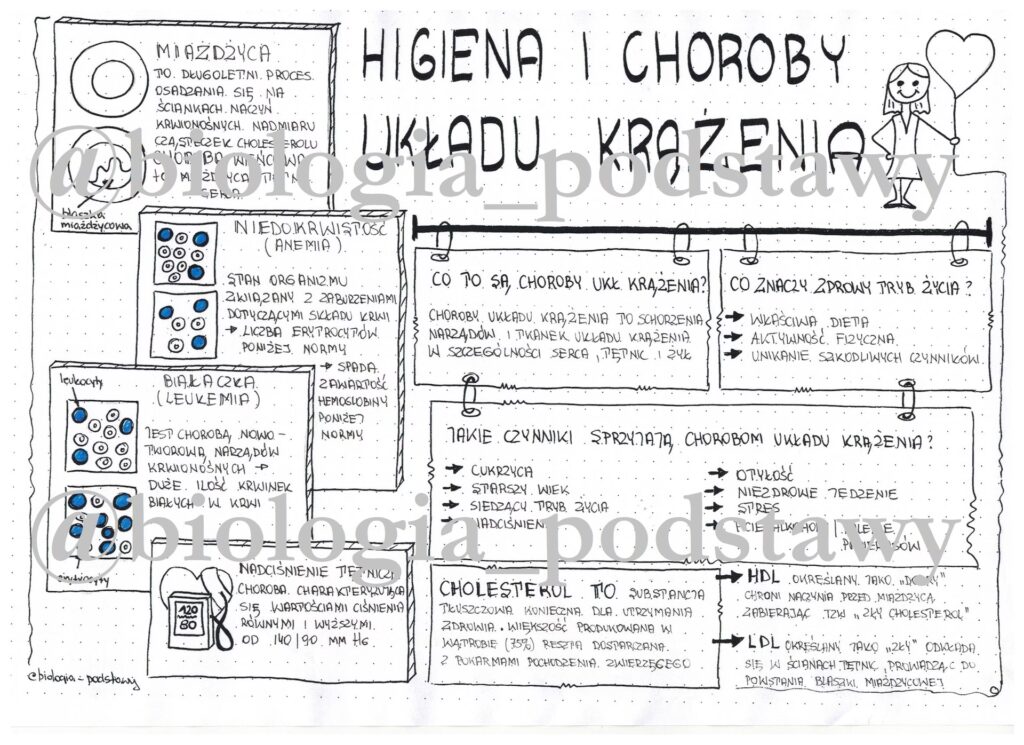 HIGIENA I CHOROBY
UKŁADU KRĄŻENIA
MIAŻDŻYCA
TO DŁUGOLETNI PROCES
OSADZANIA SIĘ NA
ŚCIANKACH NACZYŃ
KRWIONOŚNYCH NADMIARU
CZĄSTECZEK CHOLESTEROLU
CHOROBA WIEŃCOWA
TO MIAŻDŻYCA TĘTNIC
SERCA
blaszka
miażdżycowa
@biologia_podstawy
NIEDOKRWISTOŚĆ
(ANEMIA)
STAN ORGANIZMU
ZWIĄZANY Z ZABURZENIAMI
DOTYCZĄCYMI SKŁADU KRWI
→ LICZBA ERYTROCYTÓW
PONIŻEJ NORMY
→ SPADA
ZAWARTOŚĆ
HEMOGLOBINY
PONIŻEJ
NORMY
CO TO SĄ CHOROBY UKŁ KRĄŻENIA?
CHOROBY UKŁADU KRĄŻENIA TO SCHORZENIA
NARZĄDÓW I TKANEK UKŁADU KRĄŻENIA
W SZCZEGÓLNOŚCI SERCA, TĘTNIC I ŻYŁ
CO ZNACZY ZDROWY TRYB ŻYCIA?
→ WŁAŚCIWA DIETA
→ AKTYWNOŚĆ FIZYCZNA
→ UNIKANIE SZKODLIWYCH CZYNNIKÓW
leukocyty
BIAŁACZKA
(LEUKEMIA)
JEST CHOROBĄ NOWO-
TWOROWĄ NARZĄDÓW
KRWIONOŚNYCH →
DUŻE ILOŚĆ KRWINEK
BIAŁYCH W KRWI
JAKIE CZYNNIKI SPRZYJAJĄ CHOROBOM UKŁADU KRĄŻENIA?
→ CUKRZYCA
→ STARSZY WIEK
→ SIEDZĄCY TRYB ŻYCIA
→ NADCIŚNIENIE
→ OTYŁOŚĆ
→ NIEZDROWE JEDZENIE
→ STRES
→ PICIE ALKOHOLU I PALENIE
PAPIEROSÓW
@biologia_podstawy
NADCIŚNIENIE TĘTNICZE
CHOROBA CHARAKTERYZUJĄCA
SIĘ WARTOŚCIAMI CIŚNIENIA
RÓWNYMI I WYŻSZYMI
OD 140/90 MM HG.
120
80
CHOLESTEROL TO SUBSTANCJA
TŁUSZCZOWA KONIECZNA DLA UTRZYMANIA
ZDROWIA. WIĘKSZOŚĆ PRODUKOWANA W
WĄTROBIE (75%) RESZTA DOSTARCZANA
Z POKARMAMI POCHODZENIA ZWIERZĘCEGO
→ HDL OKREŚLANY JAKO „DOBRY"
CHRONI NACZYNIA PRZED MIAŻDŻYCĄ
ZABIERAJĄC TZW „ZŁY CHOLESTEROL"
→ LDL OKREŚLANY JAKO „ZŁY" ODKŁADA
SIĘ W ŚCIANACH TĘTNIC, PROWADZĄC DO
POWSTANIA BLASZKI MIAŻDŻYCOWEJ
@biologia-podstawy